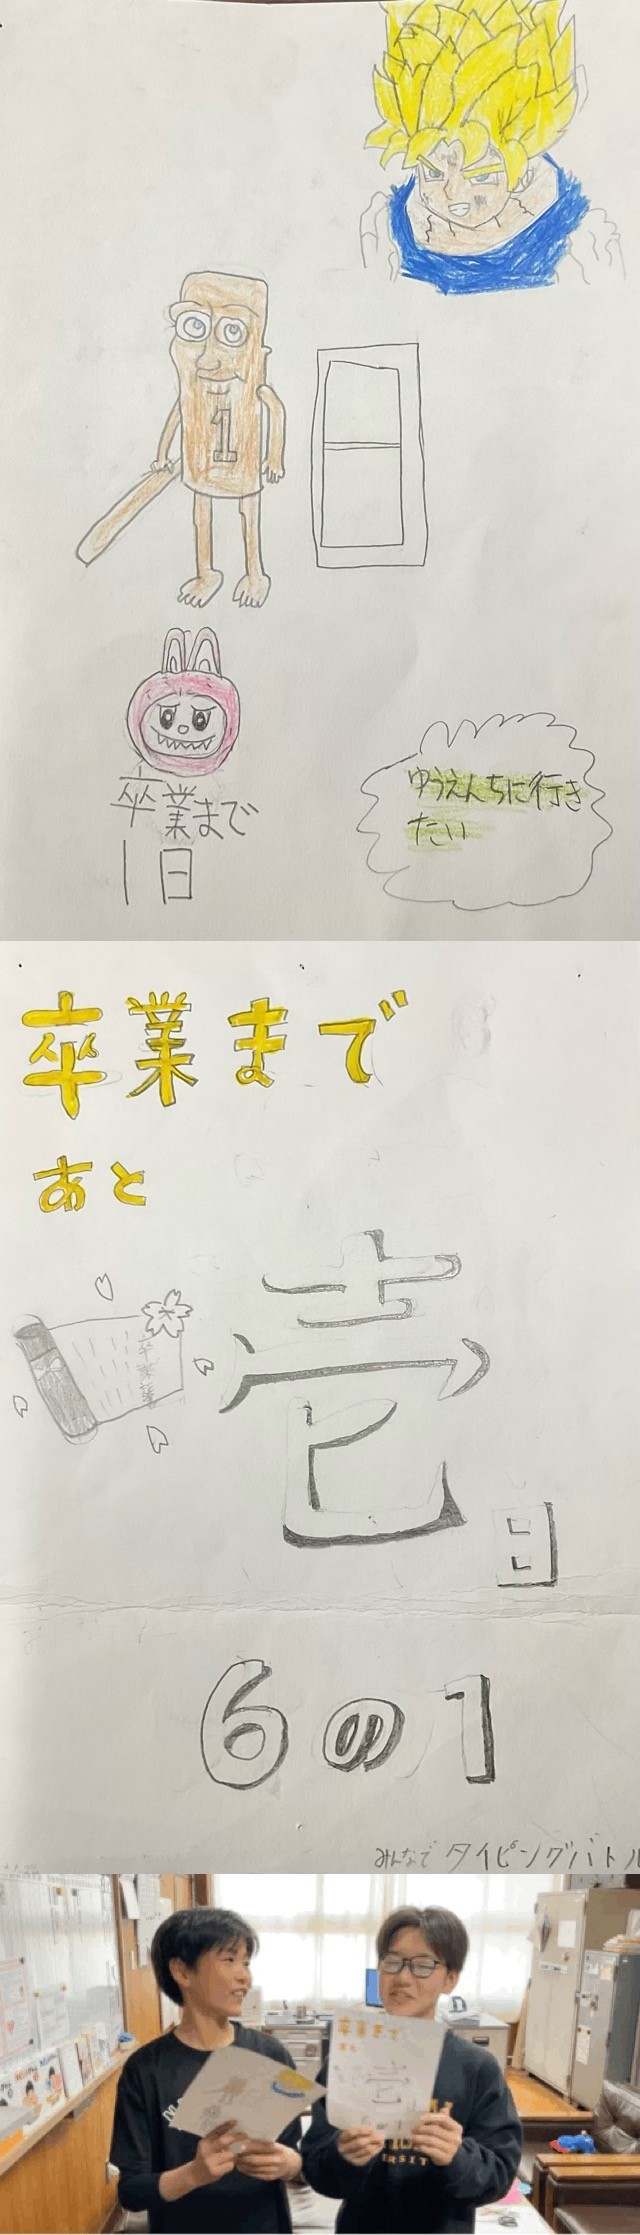 1
卒業まで
1日
ゆうえんちに行き
たい
卒業まで
あと
卒業証書
壱
日
6の1
みんなでタイピングバトル
卒業まで
あと
壱
6の1